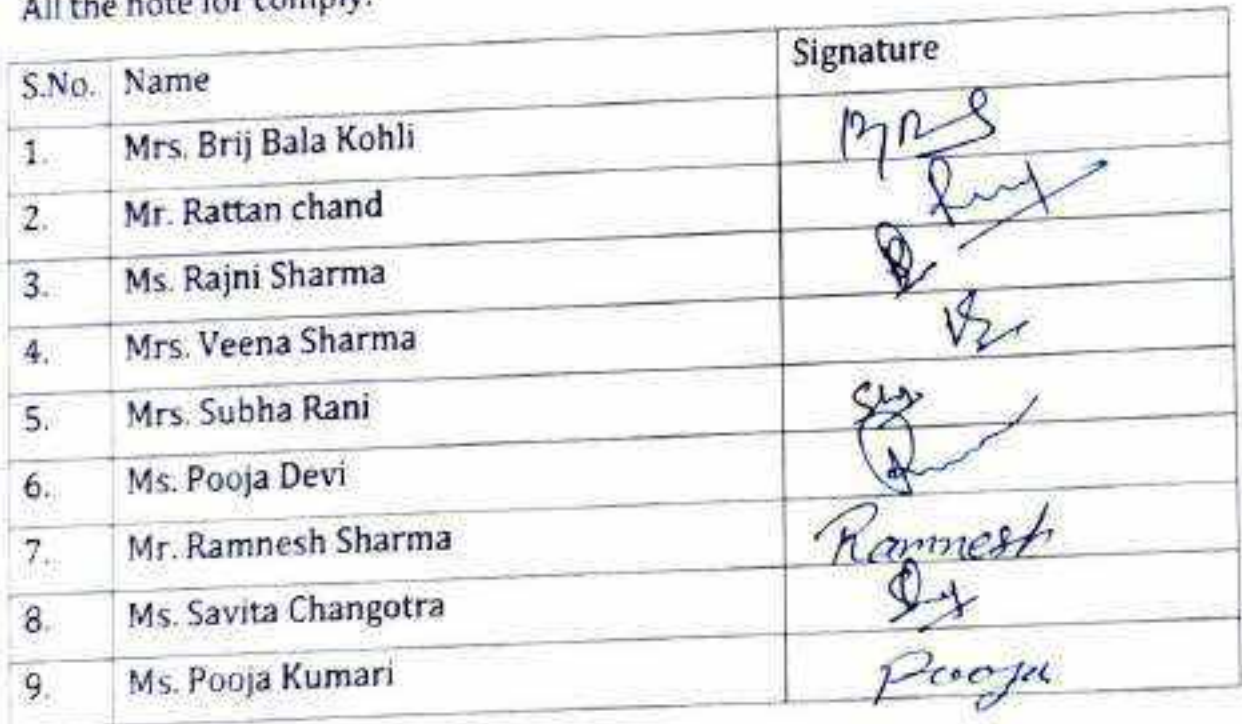 All the note for comply.
S.No. Name Signature
1. Mrs. Brij Bala Kohli
2. Mr. Rattan chand
3. Ms. Rajni Sharma
4. Mrs. Veena Sharma
5. Mrs. Subha Rani
6. Ms. Pooja Devi
7. Mr. Ramnesh Sharma Ramnesh
8. Ms. Savita Changotra
9. Ms. Pooja Kumari Pooja